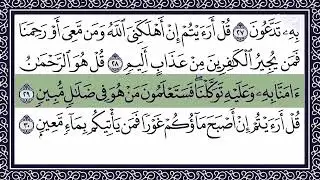 بِهِۦ تَدَّعُونَ ٢٧ قُلْ أَرَءَيْتُمْ إِنْ أَهْلَكَنِىَ ٱللَّهُ وَمَن مَّعِىَ أَوْ رَحِمَنَا
فَمَن يُجِيرُ ٱلْكَٰفِرِينَ مِنْ عَذَابٍ أَلِيمٍ ٢٨ قُلْ هُوَ ٱلرَّحْمَٰنُ
ءَامَنَّا بِهِۦ وَعَلَيْهِ تَوَكَّلْنَا ۖ فَسَتَعْلَمُونَ مَنْ هُوَ فِى ضَلَٰلٍ مُّبِينٍ ٢٩
قُلْ أَرَءَيْتُمْ إِنْ أَصْبَحَ مَآؤُكُمْ غَوْرًا فَمَن يَأْتِيكُم بِمَآءٍ مَّعِينٍۭ ٣٠